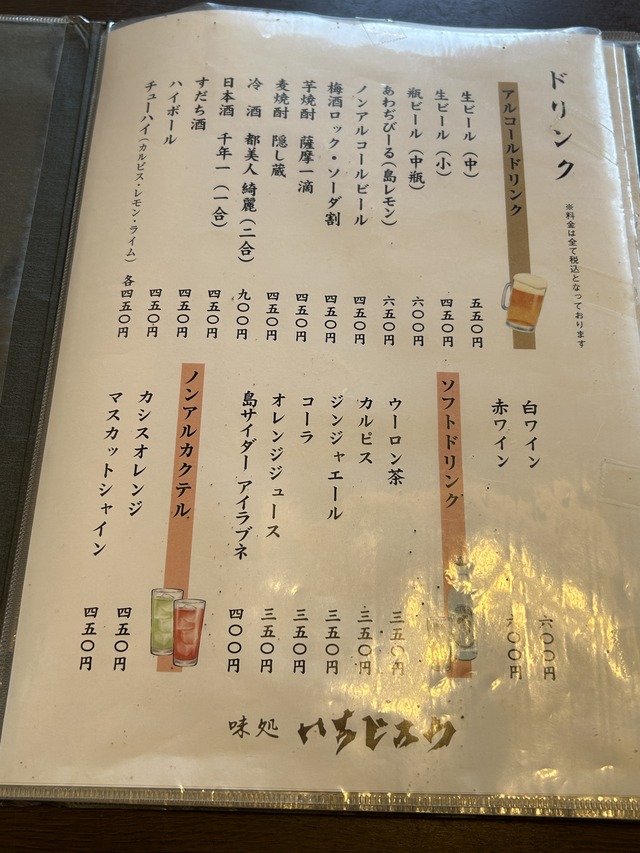 ドリンク
※料金は全て税込となっております
アルコールドリンク
生ビール（中） 五五〇円
生ビール（小） 四五〇円
瓶ビール（中瓶） 六〇〇円
あわぢびーる（島レモン） 六五〇円
ノンアルコールビール 四五〇円
梅酒ロック・ソーダ割 四五〇円
芋焼酎 薩摩一滴 四五〇円
麦焼酎 隠し蔵 四五〇円
冷酒 都美人 綺麗（二合） 九〇〇円
日本酒 千年一（一合） 四五〇円
すだち酒 四五〇円
ハイボール 四五〇円
チューハイ（カルピス・レモン・ライム） 各四五〇円
白ワイン 六〇〇円
赤ワイン 六〇〇円
ソフトドリンク
ウーロン茶 三五〇円
カルピス 三五〇円
ジンジャエール 三五〇円
コーラ 三五〇円
オレンジジュース 三五〇円
島サイダー アイラブネ 四〇〇円
ノンアルカクテル
カシスオレンジ 四五〇円
マスカットシャイン 四五〇円
味処